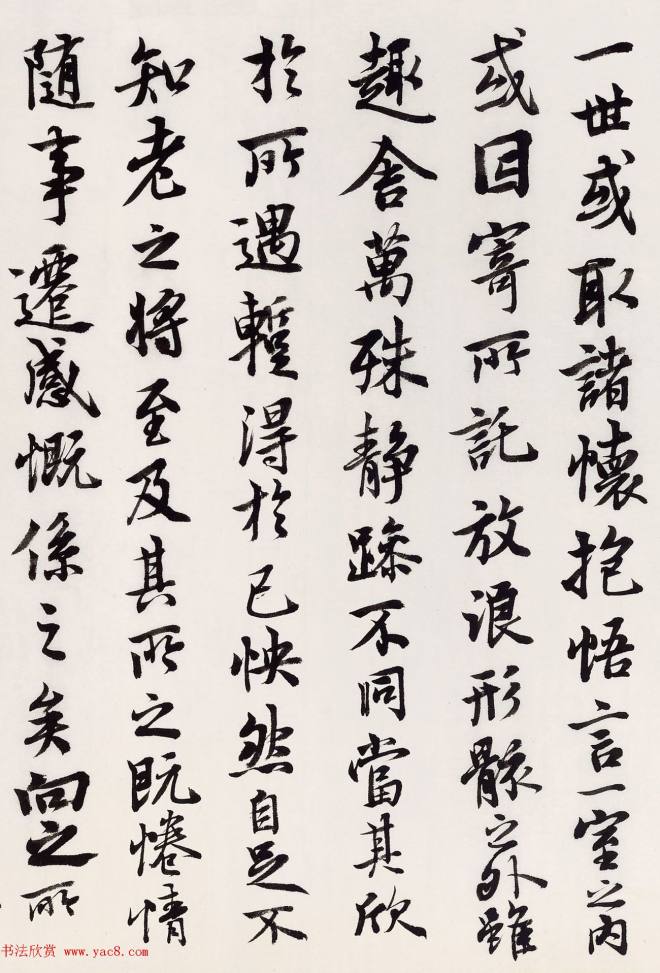 一世或取諸懷抱悟言一室之内
或因寄所託放浪形骸之外雖
趣舍萬殊静躁不同當其欣
於所遇蹔得於己怏然自足不
知老之將至及其所之既惓情
隨事遷感慨係之矣向之所
书法欣赏 www.yac8.com